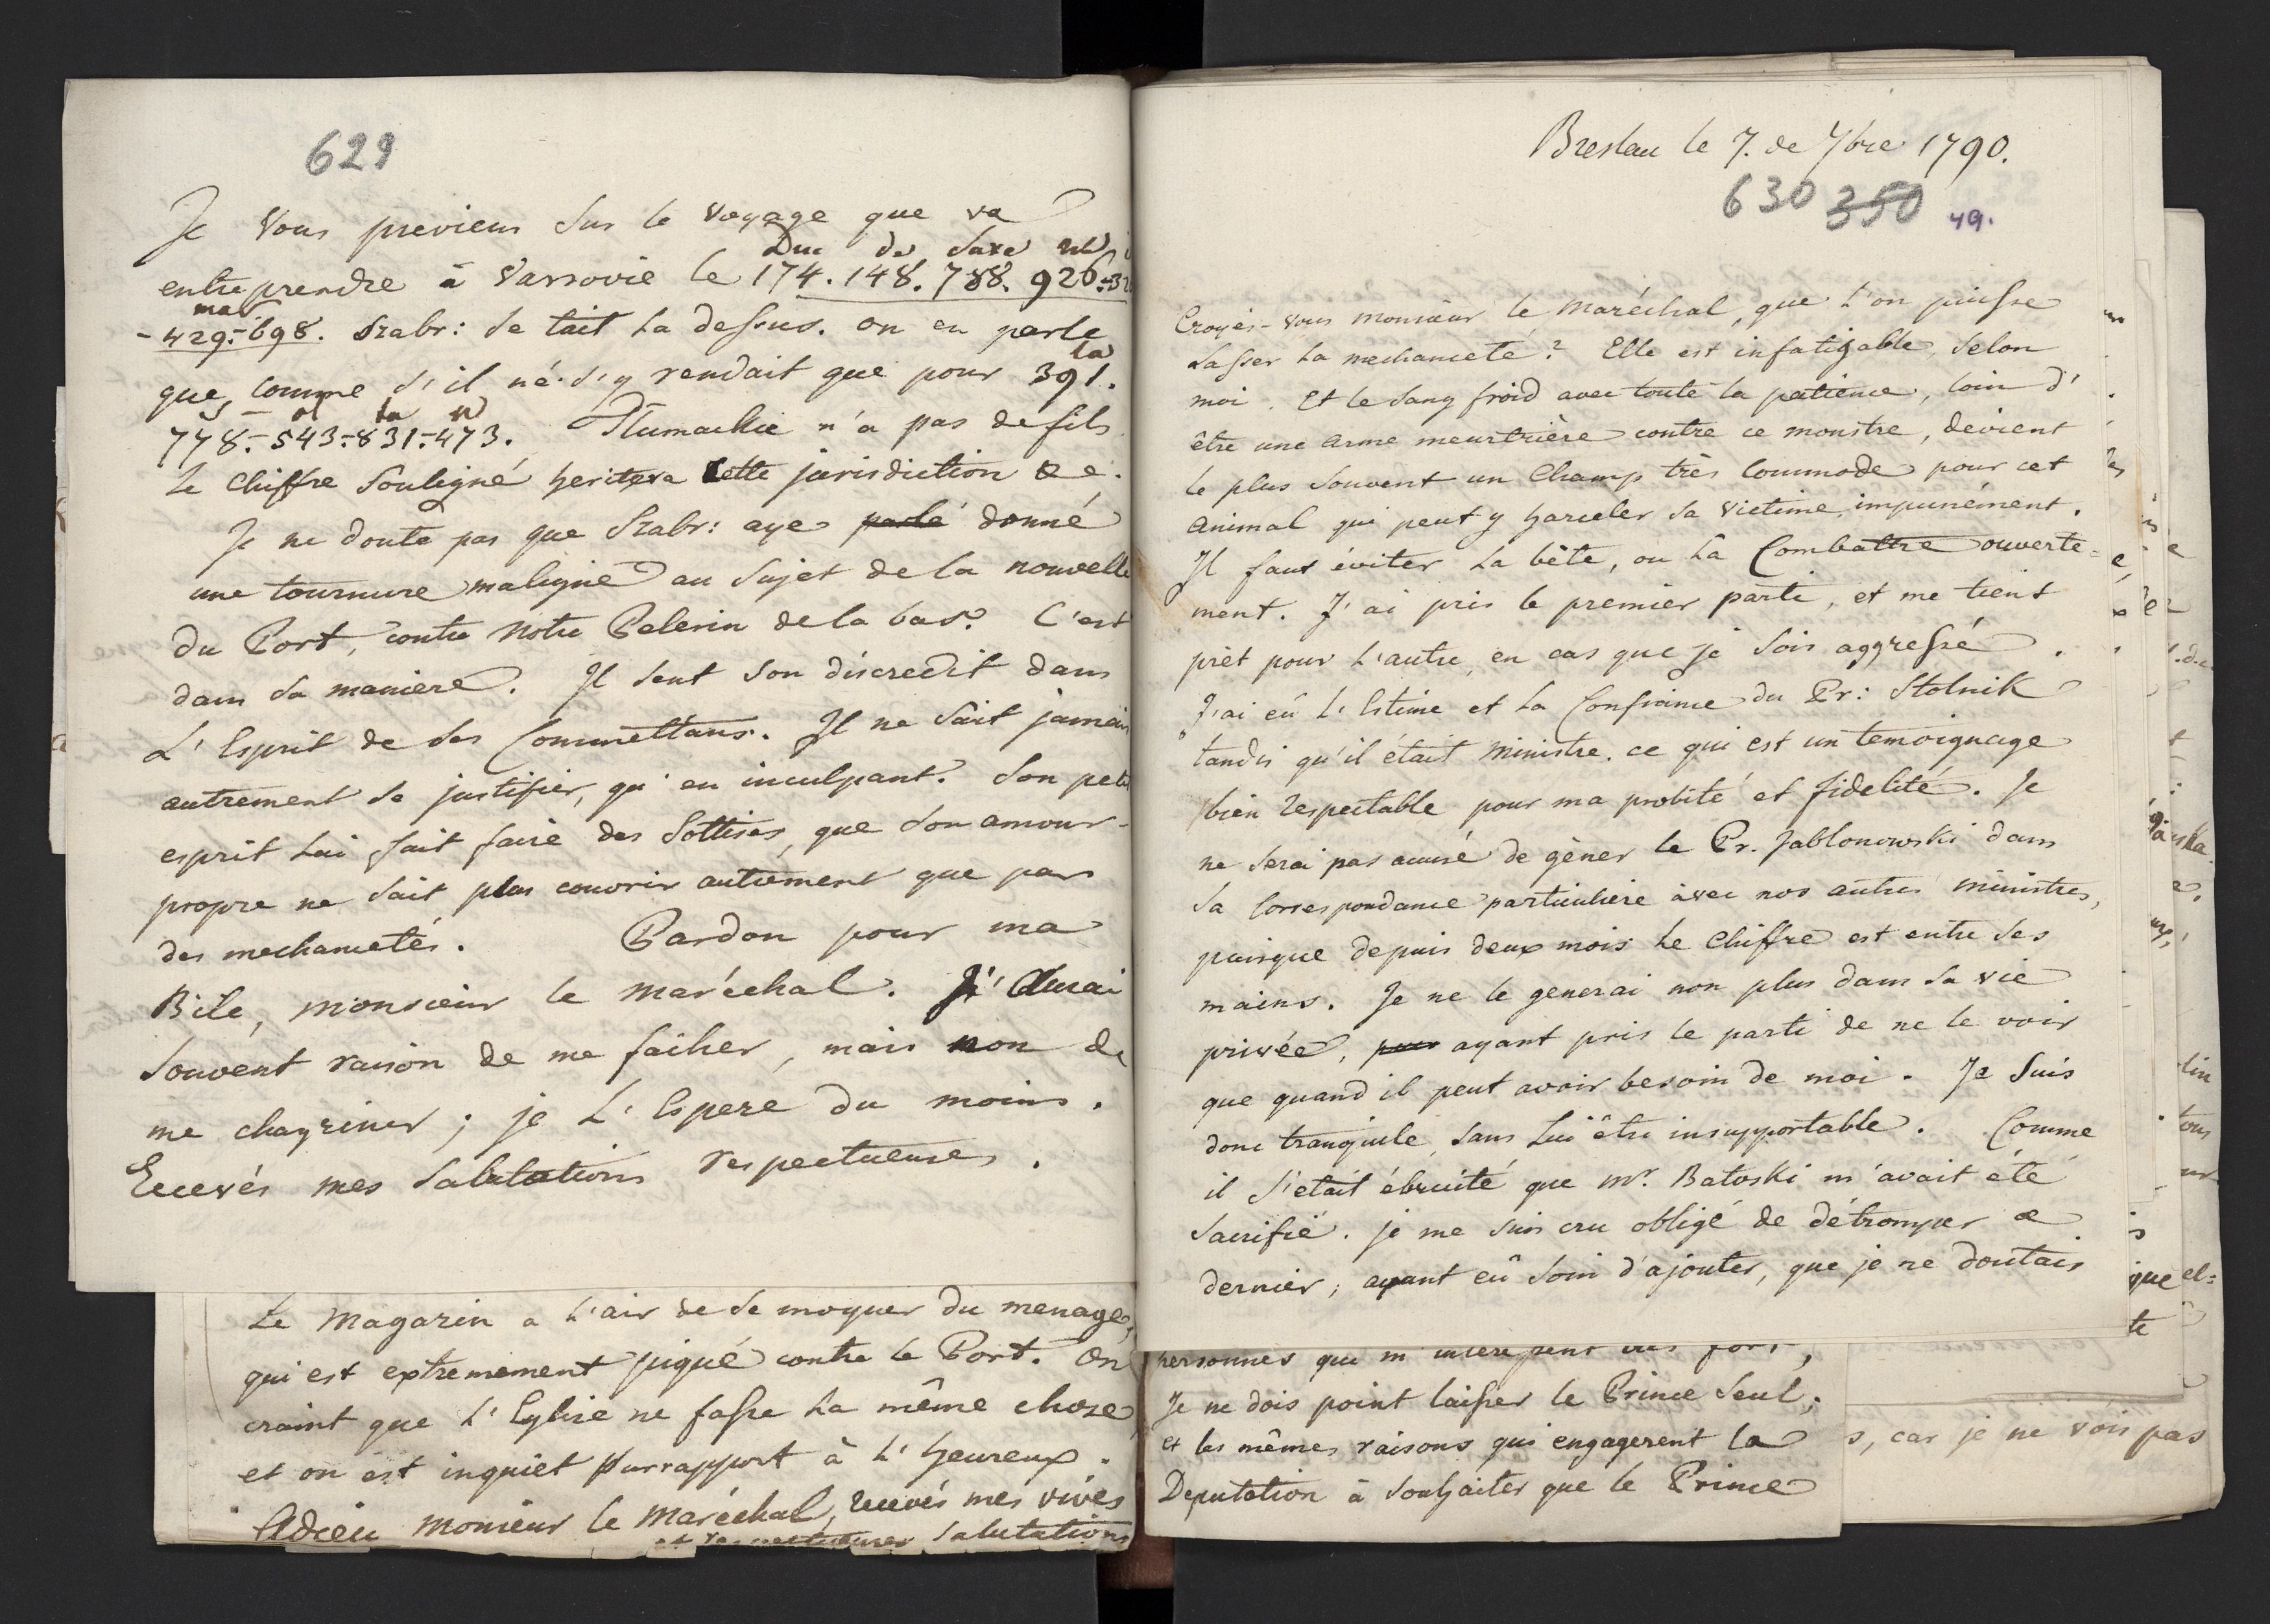 629
Je Vous previens sur le voyage que va
Duc de Saxe
entreprendre à Varsovie le 174. 148. 788. 926.
mar
-429.-698. Szabr: se tait la dessus. on en parle
que comme s'il né s'y rendait que pour 391.
la
778.-543.-831.-473. n'a pas de fils
Le Chiffre souligné heritera cette jurisdiction
Je ne doute pas que Szabr: aye parlé donné
une tournure maligne au sujet de la nouvelle
du Port, contre notre Pelerin de la bas. C'est
dans sa maniere. Il sent son discredit dans
L'Esprit de ses Commettans. Il ne sait jamais
autrement se justifier, qu'en inculpant. Son petit
esprit Lui fait faire des Sottises, que son amour-
propre ne sait plus couvrir autrement que par
des mechancetés. Pardon pour ma
Bile, monsieur le maréchal. J'Aurai
souvent raison de me facher, mais non de
me chagriner; je L'Espere du moins.
Recevés mes Salutations respectueuses.
Le Magazin a L'air de se moquer du menage,
qui est extremement piqué contre le Port. On
craint que L'Eglise ne fasse la même chose
et on est inquiet par rapport à L'heureux.
Adieu monsieur le Maréchal, recevés mes vives
et respectueuses salutations
Breslau le 7. de 7bre 1790.
630 350 49.
Croyés-vous monsieur le Maréchal, que l'on puisse
Lasser la mechanceté? Elle est infatigable, selon
moi. Et le sang froid avec toute la patience, loin d'
être une arme meurtrière contre ce monstre, devient
le plus souvent un Champ très commode pour cet
animal qui peut y harceler sa victime impunément.
Il faut éviter la bête, ou la Combattre ouverte=
ment. J'ai pris le premier parti, et me tient
prèt pour L'autre, en cas que je sois aggressé.
J'ai eû L'Estime et la Confiance du Pr: Stolnik
tandis qu'il était ministre. ce qui est un temoignage
bien respectable pour ma probité et fidelité. Je
ne serai pas accusé de gèner le Pr. Jablonowski dans
sa Correspondance particuliere avec nos autres ministres,
puisque depuis deux mois le Chiffre est entre ses
mains. Je ne le generai non plus dans sa vie
privée, pour ayant pris le parti de ne le voir
que quand il peut avoir besoin de moi. Je suis
donc tranquile, sans Lui être insupportable. Comme
il s'etait ébruité que Mr. Batoski m'avait été
sacrifié. je me suis cru obligé de détromper ce
dernier; ayant eû soin d'ajouter, que je ne doutais
personnes qui
Je ne dois point laisser le Prince seul,
et les mêmes raisons qui engagerent la
Deputation à souhaiter que le Prince
s, car je ne vois pas